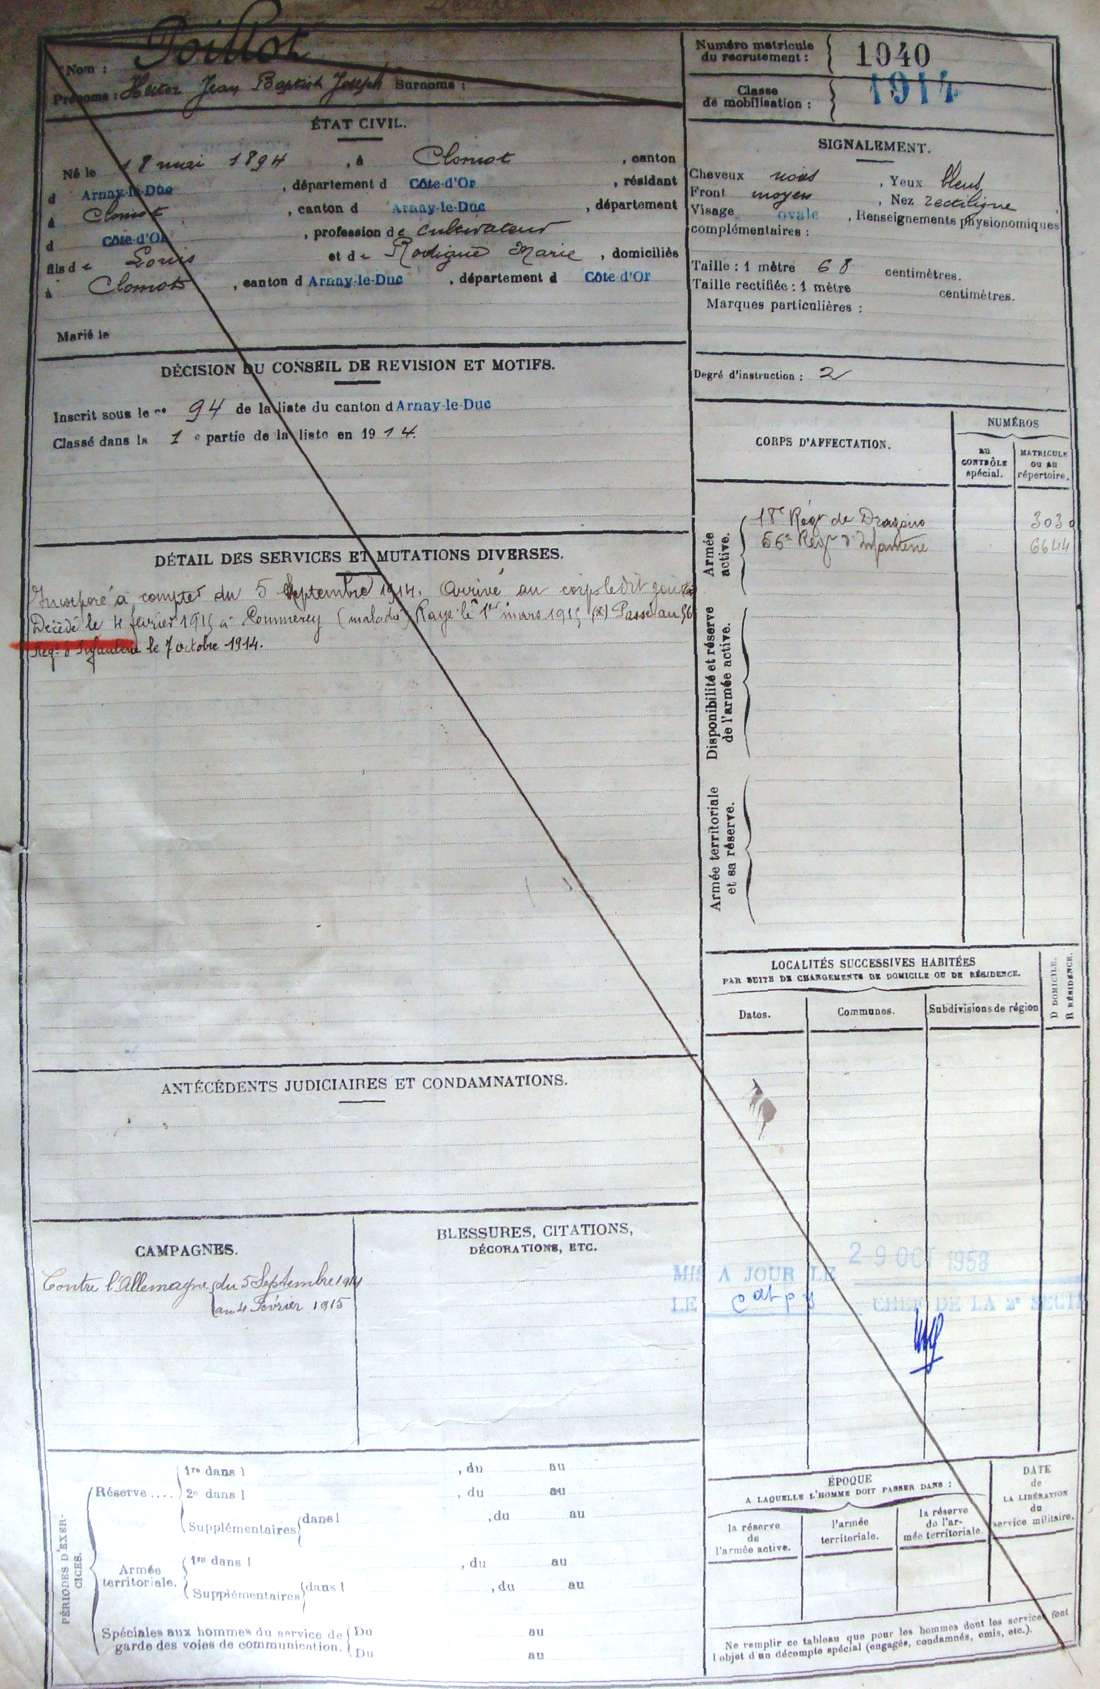 Nom : Poillot
Prénoms : Hector Jean Baptiste Joseph Surnoms :
Numéro matricule
du recrutement : 1940
Classe
de mobilisation : 1914
ÉTAT CIVIL.
Né le 18 mai 1894, à Clomot, canton
d Arnay-le-Duc, département d Côte-d'Or, résidant
à Clomot, canton d Arnay-le-Duc, département
d Côte-d'Or, profession de cultivateur
fils de Louis et de Marie, domiciliés
à Clomot, canton d Arnay-le-Duc, département d Côte d'Or
Marié le
SIGNALEMENT.
Cheveux noirs, Yeux bleus
Front moyen, Nez rectiligne
Visage ovale, Renseignements physionomiques
complémentaires :
Taille : 1 mètre 68 centimètres.
Taille rectifiée : 1 mètre centimètres.
Marques particulières :
Degré d'instruction : 2
DÉCISION DU CONSEIL DE REVISION ET MOTIFS.
Inscrit sous le no 94 de la liste du canton d Arnay-le-Duc
Classé dans la 1 e partie de la liste en 1914.
CORPS D'AFFECTATION.
NUMÉROS
au
CONTRÔLE
spécial.
MATRICULE
ou au
répertoire.
Armée
active.
18e Régt de Dragons 3030
56e Régt d'Infanterie 6644
Disponibilité et réserve
de l'armée active.
Armée territoriale
et sa réserve.
DÉTAIL DES SERVICES ET MUTATIONS DIVERSES.
Incorporé à compter du 5 Septembre 1914. Arrivé au corps ledit jour (x)
Décédé le 4 février 1915 à Commercy (maladie) Rayé le 1er mars 1915 (x) Passé au 56e
Régt d'Infanterie le 7 octobre 1914.
LOCALITÉS SUCCESSIVES HABITÉES
PAR SUITE DE CHANGEMENTS DE DOMICILE OU DE RÉSIDENCE.
Dates.
Communes.
Subdivisions de région
D DOMICILE.
R RÉSIDENCE.
ANTÉCÉDENTS JUDICIAIRES ET CONDAMNATIONS.
CAMPAGNES.
Contre l'Allemagne du 5 Septembre 1914
au 4 Février 1915
BLESSURES, CITATIONS,
DÉCORATIONS, ETC.
MIS A JOUR LE 29 OCT 1958
LE CHEF DE LA 2e SECTI
PÉRIODES D'EXER-
CICES.
Réserve ....
1re dans l , du au
2e dans l , du au
Supplémentaires dans l , du au
Armée
territoriale.
1re dans l , du au
Supplémentaires dans l , du au
Spéciales aux hommes du service de
garde des voies de communication.
Du au
Du au
ÉPOQUE
A LAQUELLE L'HOMME DOIT PASSER DANS :
la réserve
de
l'armée active.
l'armée
territoriale.
la réserve
de l'ar-
mée territoriale.
DATE
de
LA LIBÉRATION
du
service militaire.
Ne remplir ce tableau que pour les hommes dont les services font
l'objet d'un décompte spécial (engagés, condamnés, omis, etc.).